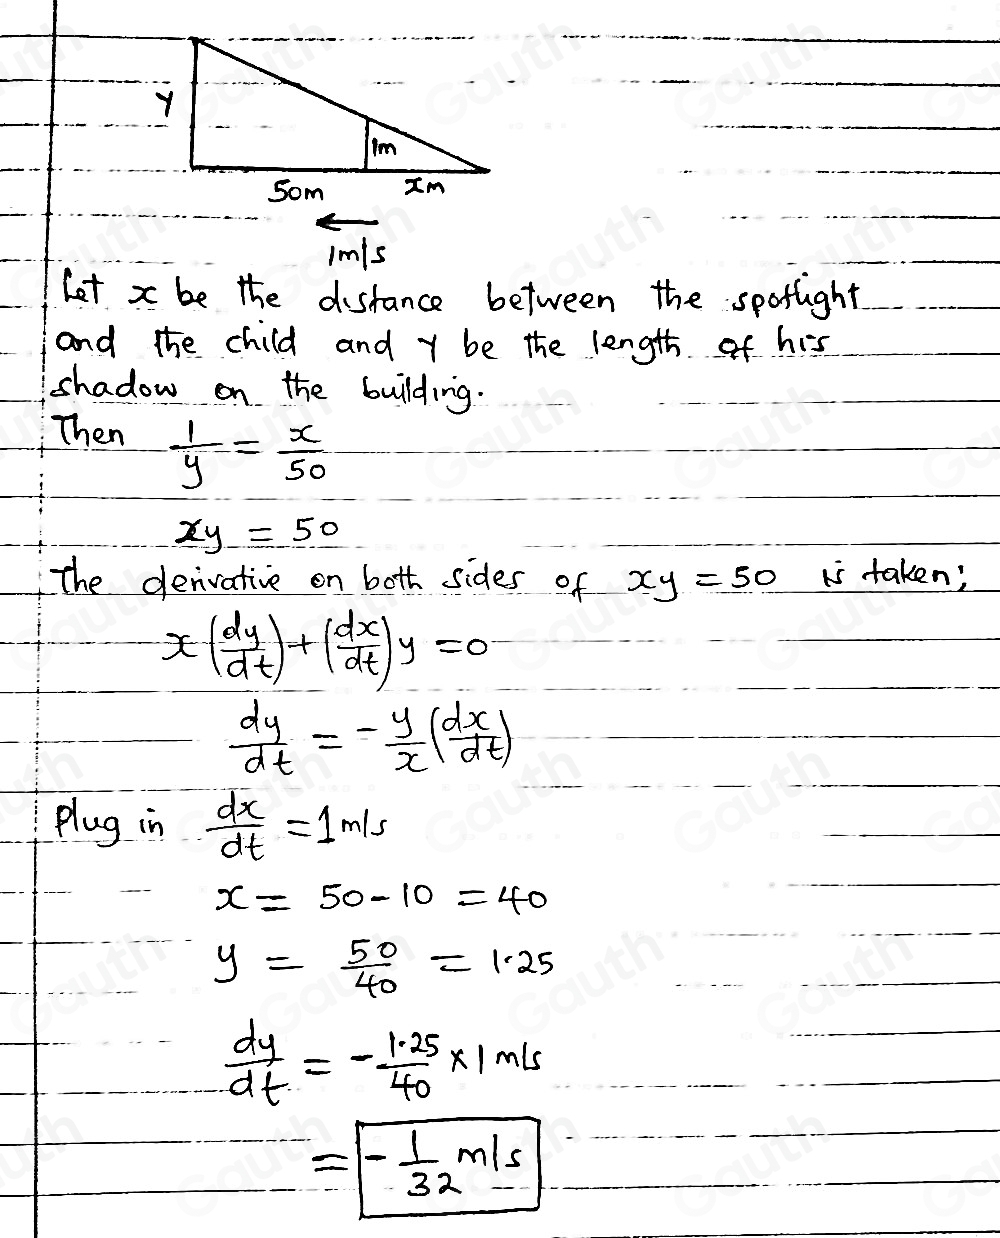 y
1m
50m
xm
1m/s
Let x be the distance between the spotlight
and the child and y be the length of his
shadow on the building.
Then 1/y = x/50
xy = 50
The derivative on both sides of xy = 50 is taken;
x(dy/dt) + (dx/dt)y = 0
dy/dt = - y/x (dx/dt)
Plug in dx/dt = 1 m/s
x = 50 - 10 = 40
y = 50/40 = 1.25
dy/dt = - 1.25/40 × 1 m/s
= - 1/32 m/s
Gauth